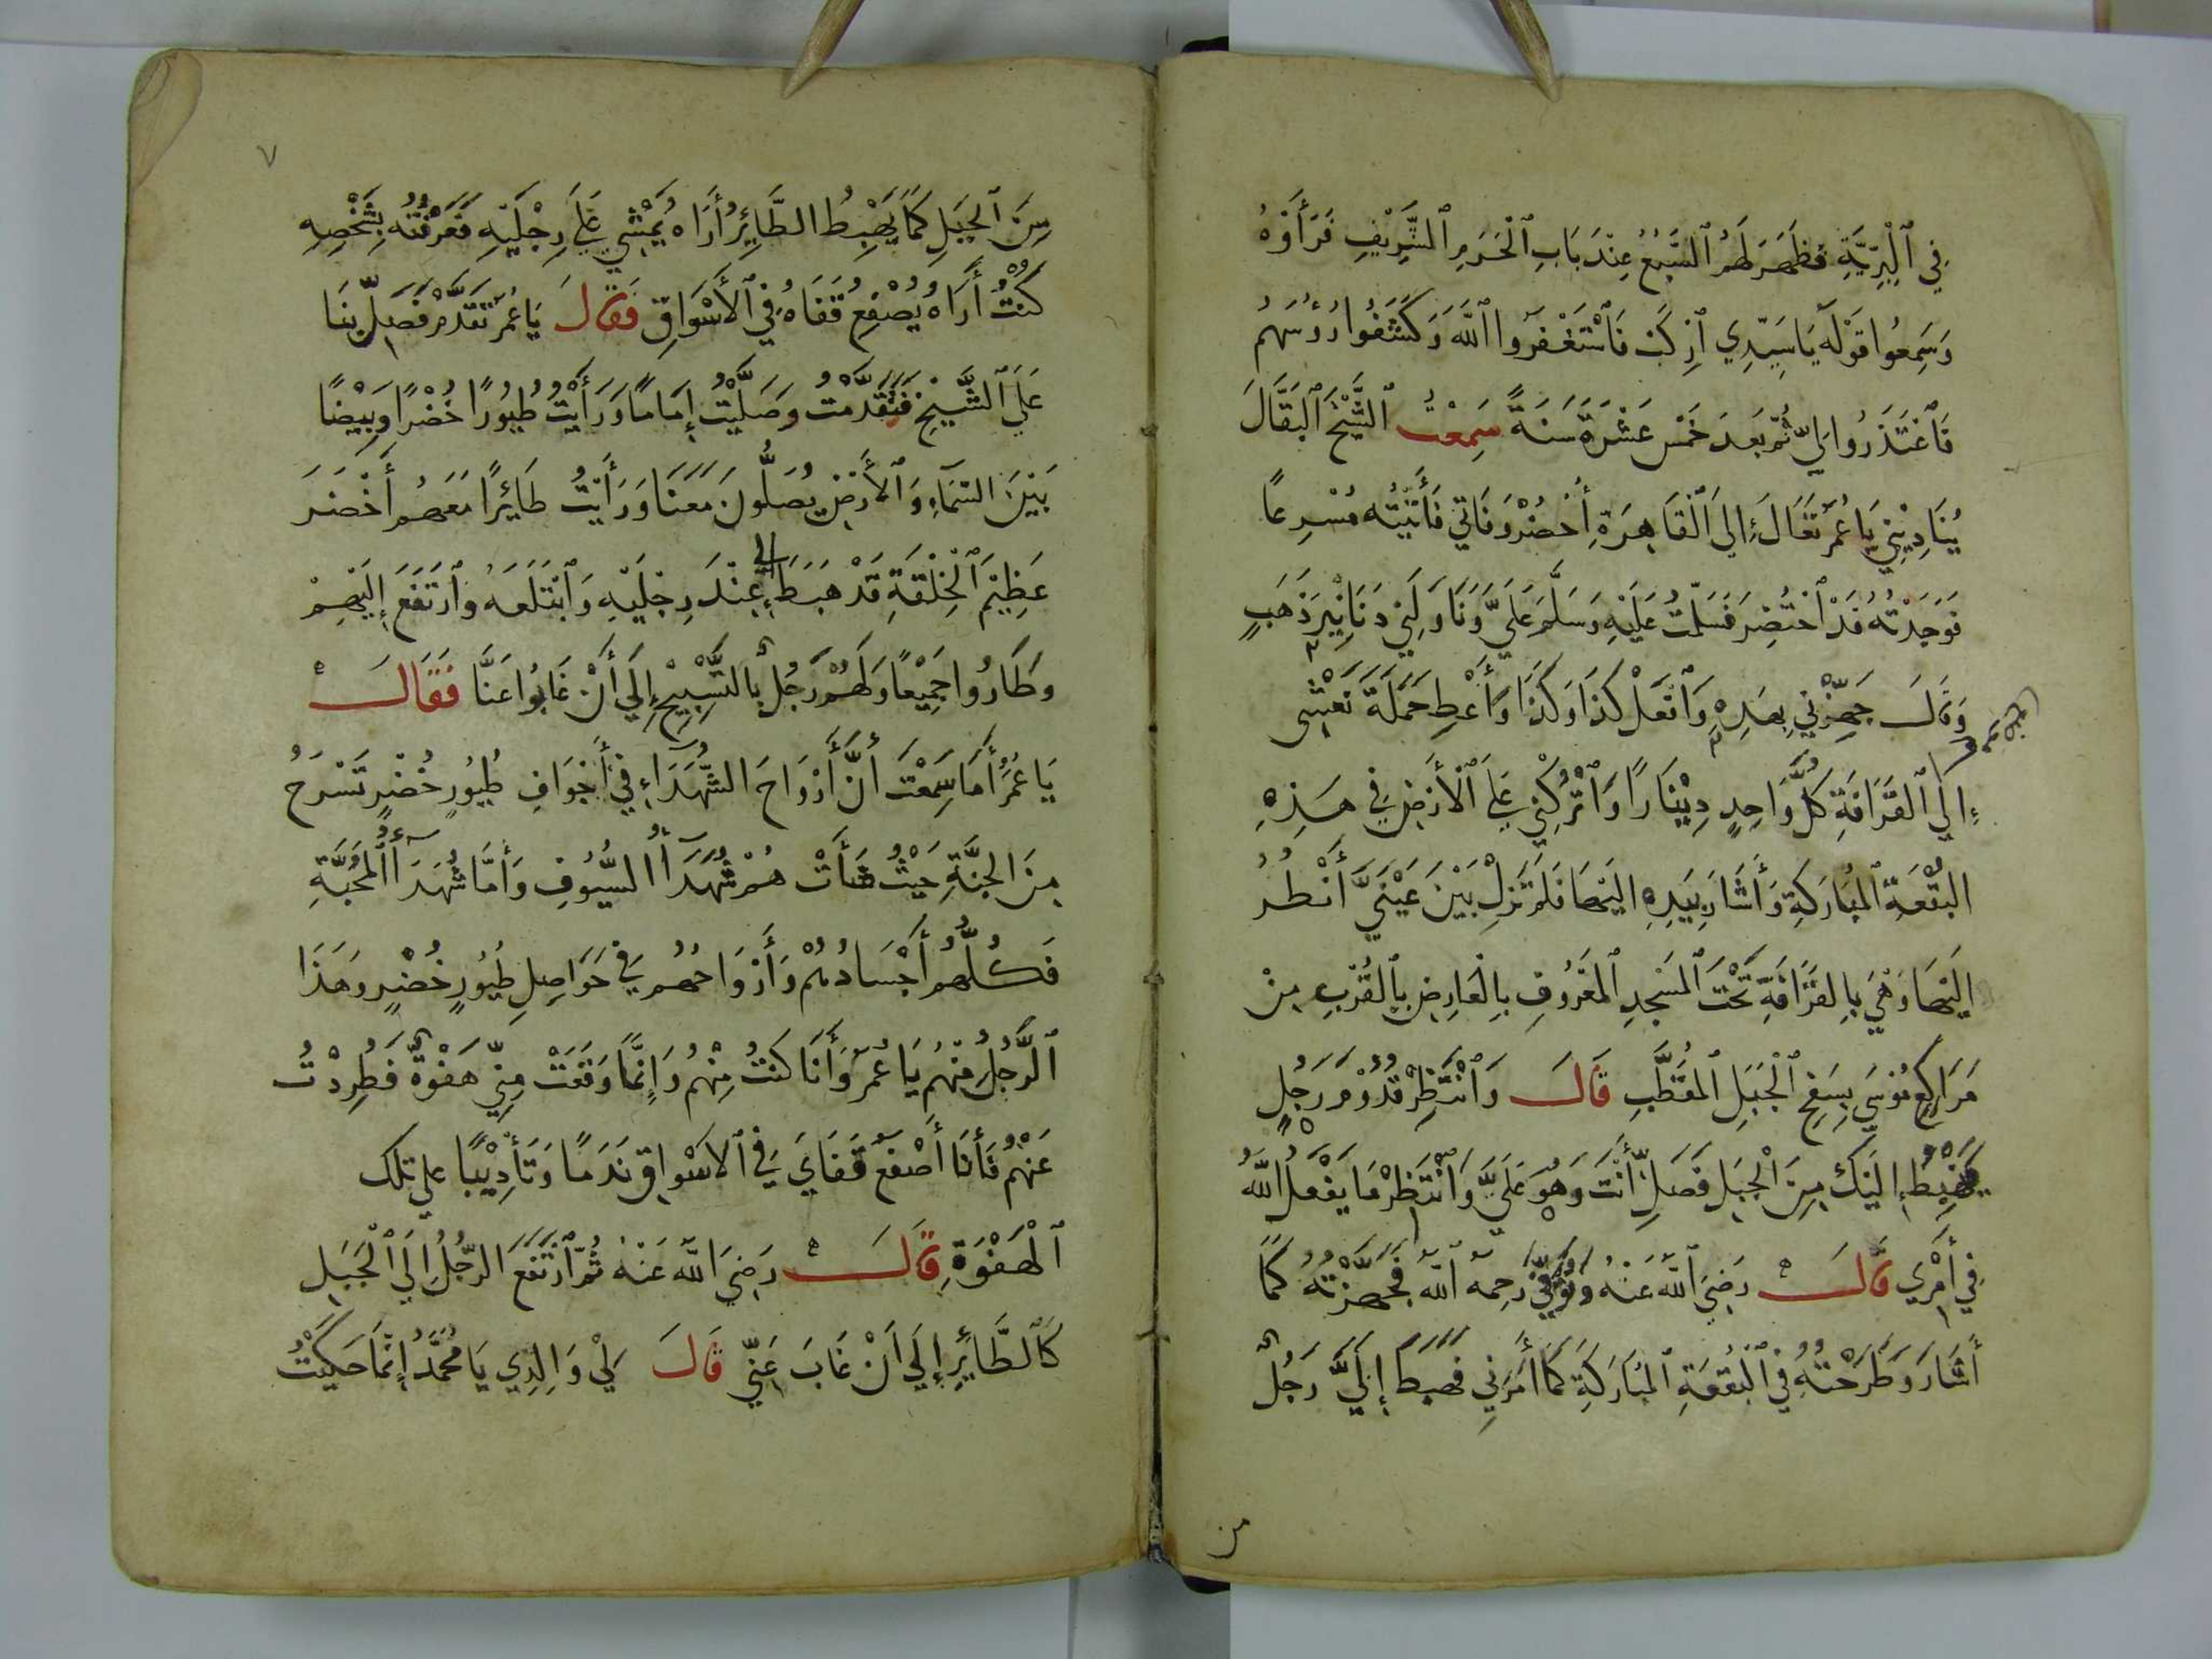 فِي ٱلْبَرِّيَّةِ فَظَهَرَ لَهُمُ ٱلسَّبُعُ عِنْدَ بَابِ ٱلْحَرَمِ ٱلشَّرِيْفِ فَرَأَوْهُ
وَسَمِعُوا قَوْلَهُ يَا سَيِّدِي ٱرْكَبْ فَٱسْتَغْفَرُوا ٱللَّهَ وَكَشَفُوا رُؤُسَهُمْ
فَٱعْتَذَرُوا إِلَيَّ ثُمَّ بَعْدَ خَمْسَ عَشْرَةَ سَنَةً سَمِعْتُ ٱلشَّيْخَ ٱلبَقَّالَ
يُنَادِيْنِي يَا عُمَرُ تَعَالَ إِلَى ٱلْقَاهِرَةِ أُحْضُرْ وَفَاتِي فَأَتَيْتُه مُسْرِعًا
فَوَجَدْتُهُ قَدْ ٱحْتُضِرَ فَسَلَّمْتُ عَلَيْهِ وَسَلَّمَ عَلَيَّ وَنَاوَلَنِي دَنَانِيْرَ ذَهَبٍ
وَقَالَ جَهِّزْنِي بِهَذِهِ وَٱفْعَلْ كَذَا وَكَذَا وَأَعْطِ حَمَلَةَ نَعْشِي
إِلَى ٱلْقَرَافَةِ كُلَّ وَاحِدٍ دِيْنَارًا وَٱتْرُكْنِي عَلَى ٱلْأَرْضِ فِي هَذِهِ
البُقْعَةِ ٱلمُبَارَكَةِ وَأَشَارَ بِيَدِهِ اليْهَا فَلَمْ تَزَلْ بَيْنَ عَيْنَيَّ أَنْظُرُ
إِلَيْهَا وَهْيَ بِالقَرَافَةِ تَحْتَ ٱلمَسْجِدِ ٱلمَعْرُوفِ بِالْعَارِضِ بِٱلْقُرْبِ مِنْ
مَرَاكِعِ مُوْسَى بِسَفْحِ ٱلْجَبَلِ ٱلمُقَطَّبِ قَالَ وَٱنْتَظِرْ قُدُوْمَ رَجُلٍ
يَهْبِطُ إِلَيْكَ مِنَ ٱلْجَبَلِ فَصَلِّ أَنْتَ وَهُوَ عَلَيَّ وَٱنْتَظِرْ مَا يَفْعَلُ ٱللَّهُ
فِي أَمْرِي قَالَ رَضِيَ ٱللَّهُ عَنْهُ وَتُوُفِّيَ رَحِمَهُ ٱللَّه فَجَهَّزْتُهُ كَمَا
أَشَارَ وَطَرَحْتُهُ فِي ٱلْبُقْعَةِ ٱلمُبَارَكَةِ كَمَا أَمَرَنِي فَهَبَطَ إِلَيَّ رَجُلٌ
من
٧
مِنَ ٱلْجَبَلِ كَمَا يَهْبِطُ الطَّائِرُ أَرَاهُ يَمْشِي عَلَى رِجْلَيْهِ فَعَرَفْتُهُ بِشَخْصِهِ
كُنْتُ أَرَاهُ يُصْفَعُ قَفَاهُ فِي ٱلْأَسْوَاقِ فَقَالَ يَا عُمَرُ تَقَدَّمْ فَصَلِّ بِنَا
عَلَى ٱلشَّيْخِ فَتَقَدَّمْتُ وَصَلَّيْتُ إِمَامًا وَرَأَيْتُ طُيُورًا خُضْرًا وَبِيْضًا
بَيْنَ السَّمَاءِ وَٱلْأَرْضِ يُصَلُّونَ مَعَنَا وَرَأَيْتُ طَائِرًا مَعَهُم أَخْضَرَ
عَظِيْمَ ٱلْخِلْقَةِ قَدْ هَبَطَ إِلَى عِنْدَ رِجْلَيْهِ وَٱبْتَلَعَهُ وَٱرْتَفَعَ إِلَيْهِمْ
وَطَارُوا جَمِيْعًا وَلَهُمْ زَجَلٌ بِالتَّسْبِيْحِ إِلَى أَنْ غَابُوا عَنَّا فَقَالَ
يَا عُمَرُ أَمَا سَمِعْتَ أَنَّ أَرْوَاحَ الشُّهَدَاءِ فِي أَجْوَافِ طُيُورٍ خُضْرٍ تَسْرَحُ
مِنَ الجَنَّةِ حَيْثُ شَأَتْ هُمْ شُهَدَآءُ السُّيُوفِ وَأَمَّا شُهَدَآءُ المَحَبَّةِ
فَكُلُّهُم أَجْسَادُهُمْ وَأَرْوَاحُهُم فِي حَوَاصِلِ طُيُورٍ خُضْرٍ وَهَذَا
ٱلرَّجُلُ مِنْهُم يَا عُمَرُ وَأَنَا كُنْتُ مِنْهُم وَإِنَّمَا وَقَعَتْ مِنِّي هَفْوَةٌ فَطُرِدْتُ
عَنْهُمْ فَأَنَا أَصْفَعُ قَفَايَ فِي ٱلاسْوَاقِ نَدَمًا وَتَأْدِيْبًا على تلك
ٱلْهَفْوَةِ قَالَ رَضِيَ ٱللَّهُ عَنْهُ ثُمَّ ٱرْتَفَعَ الرَّجُلُ إِلَى ٱلْجَبَلِ
كَٱلطَّائِرِ إِلَى أَنْ غَابَ عَنِّي قَالَ لِيْ وَالِدِي يَا مُحَمَّدُ إِنَّمَا حَكَيْتُ